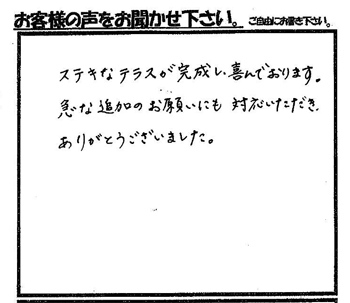 お客様の声をお聞かせ下さい。ご自由にお書き下さい。
ステキなテラスが完成し、喜んでおります。
急な追加のお願いにも対応いただき、
ありがとうございました。